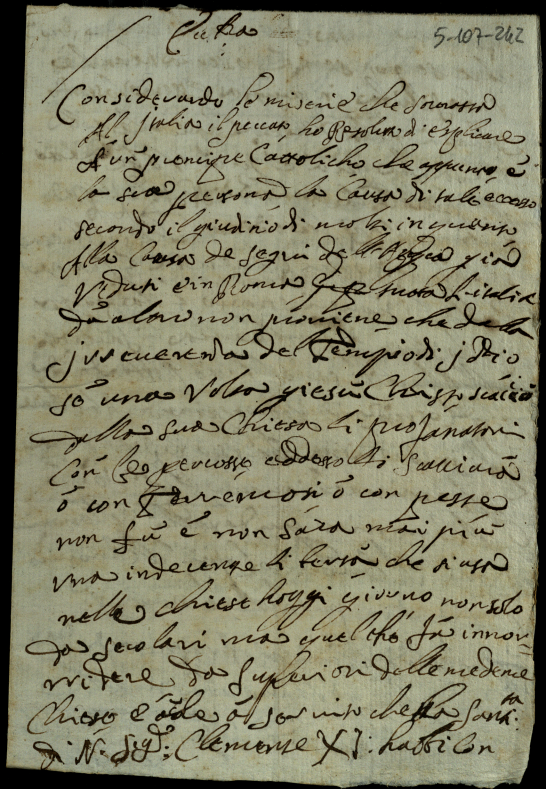 5-107-242
Considerando le miserie che sovrasta
Al Italia il peccato, ho Resoluto di esplicare
A un prencipe Cattolicho che appunto è
la sua persona la Causa di tale eccesso
secondo il giuditio di molti in quanto
Alla Causa de segni dell' già
Veduti è in Roma Italia
da altro non proviene che dalla
de Tempio di
se una Volta giesu Christo scacciò
dalla sua Chiesa li profanatori
Con le percosse adesso li scacciarà
ò con Terremoti ò con peste
non fù è non sarà mai più
una indecenza li tersa che si usa
nelle chiese hoggi giorno non solo
da secolari ma quel che fà innor=
ridere da superiori delle medeme
Chiese è che la Santta
di N. Sigr: Clemente XI: habbi con